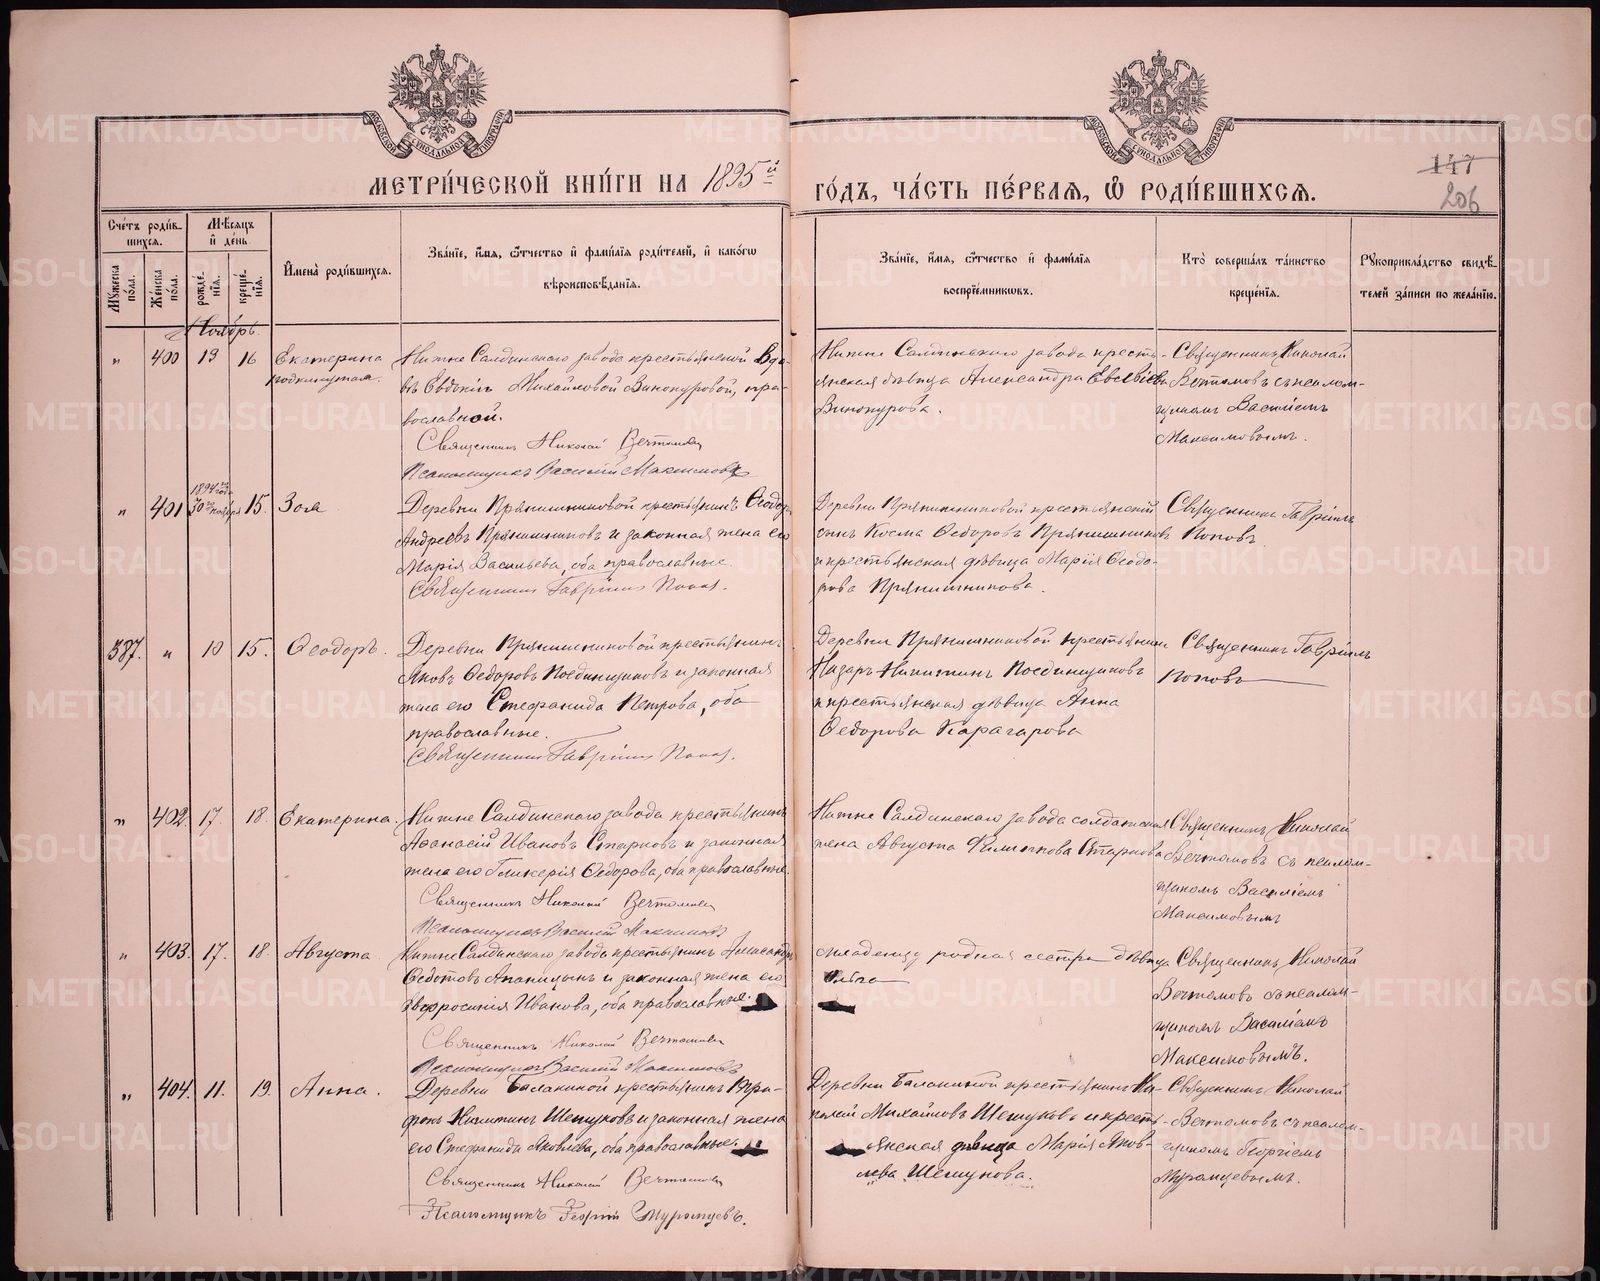 МЕТРИ́ЧЕСКОЙ КНИ́ГИ НА 1895й
ГО́ДЪ, ЧА́СТЬ ПЕ́РВАѦ, Ѡ҆ РОДИ́ВШИХСѦ.
147
206
Сче́тъ роди́в-
шихсѧ.
Мѣ́сѧцъ
и҆ де́нь.
Мꙋ́жеска по́ла.
Же́нска по́ла.
рожде́-нїѧ.
креще́-нїѧ.
И҆мена̀ роди́вшихсѧ.
Зва́нїе, и҆́мѧ, ѻ҆́тчество и҆ фами́лїѧ роди́телей, и҆ како́гѡ
вѣроисповѣ́данїѧ.
Зва́нїе, и҆́мѧ, ѻ҆́тчество и҆ фами́лїѧ
воспрїе́мникѡвъ.
Кто̀ соверша́лъ та́инство
креще́нїѧ.
Рꙋкоприкла́дство свидѣ́-
телей за́писи по жела́нїю.
Ноябрь.
" 400 13 16 Екатерина
подкинутая.
Нижне Салдинскаго завода крестьянской вдо-
вѣ Евдокіи Михайловой Винокуровой, пра-
вославной.
Священникъ Николай Вечтомовъ
Псаломщикъ Василій Максимовъ
Нижне Салдинскаго завода кресть-
янская дѣвица Александра Евсевіева
Винокурова.
Священникъ Николай
Вечтомовъ съ псалом-
щикомъ Василіемъ
Максимовымъ.
" 401 1894го года 30го ноября 15. Зоя
Деревни Прянишниковой крестьянинъ Ѳеодоръ
Андреевъ Прянишниковъ и законная жена его
Марія Васильева, оба православные.
Священникъ Гавріилъ Поповъ.
Деревни Прянишниковой крестьянскій
сынъ Косма Ѳедоровъ Прянишниковъ
и крестьянская дѣвица Марія Ѳеодо-
рова Прянишникова.
Священникъ Гавріилъ
Поповъ.
387. " 10 15. Ѳеодоръ.
Деревни Прянишниковой крестьянинъ
Яковъ Ѳедоровъ Поединщиковъ и законная
жена его Стефанида Петрова, оба
православные.
Священникъ Гавріилъ Поповъ.
Деревни Прянишниковой крестьянинъ
Назаръ Никитинъ Поединщиковъ
и крестьянская дѣвица Анна
Ѳедорова Карагарова
Священникъ Гавріилъ
Поповъ
" 402. 17. 18. Екатерина.
Нижне Салдинскаго завода крестьянинъ
Аѳанасій Ивановъ Старковъ и законная
жена его Гликерія Ѳедорова, оба православные.
Священникъ Николай Вечтомовъ
Псаломщикъ Василій Максимовъ
Нижне Салдинскаго завода солдатская
жена Августа Филиппова Старкова
Священникъ Николай
Вечтомовъ съ псалом-
щикомъ Василіемъ
Максимовымъ
" 403. 17. 18. Августа
Нижне Салдинскаго завода крестьянинъ Александръ
Ѳедотовъ Апаницынъ и законная жена его
Евфросинія Иванова, оба православные.
Священникъ Николай Вечтомовъ
Псаломщикъ Василій Максимовъ
младенцу родная сестра дѣвица
Ольга
Священникъ Николай
Вечтомовъ съ псалом-
щикомъ Василіемъ
Максимовымъ.
" 404. 11. 19. Анна.
Деревни Балакиной крестьянинъ Три-
фонъ Никитинъ Шешуковъ и законная жена
его Стефанида Яковлева, оба православные.
Священникъ Николай Вечтомовъ
Псаломщикъ Георгій Муромцевъ.
Деревни Балакиной крестьянинъ Ни-
колай Михайловъ Шешуковъ и кресть-
янская дѣвица Марія Яков-
лева Шешукова.
Священникъ Николай
Вечтомовъ съ псалом-
щикомъ Георгіемъ
Муромцевымъ.